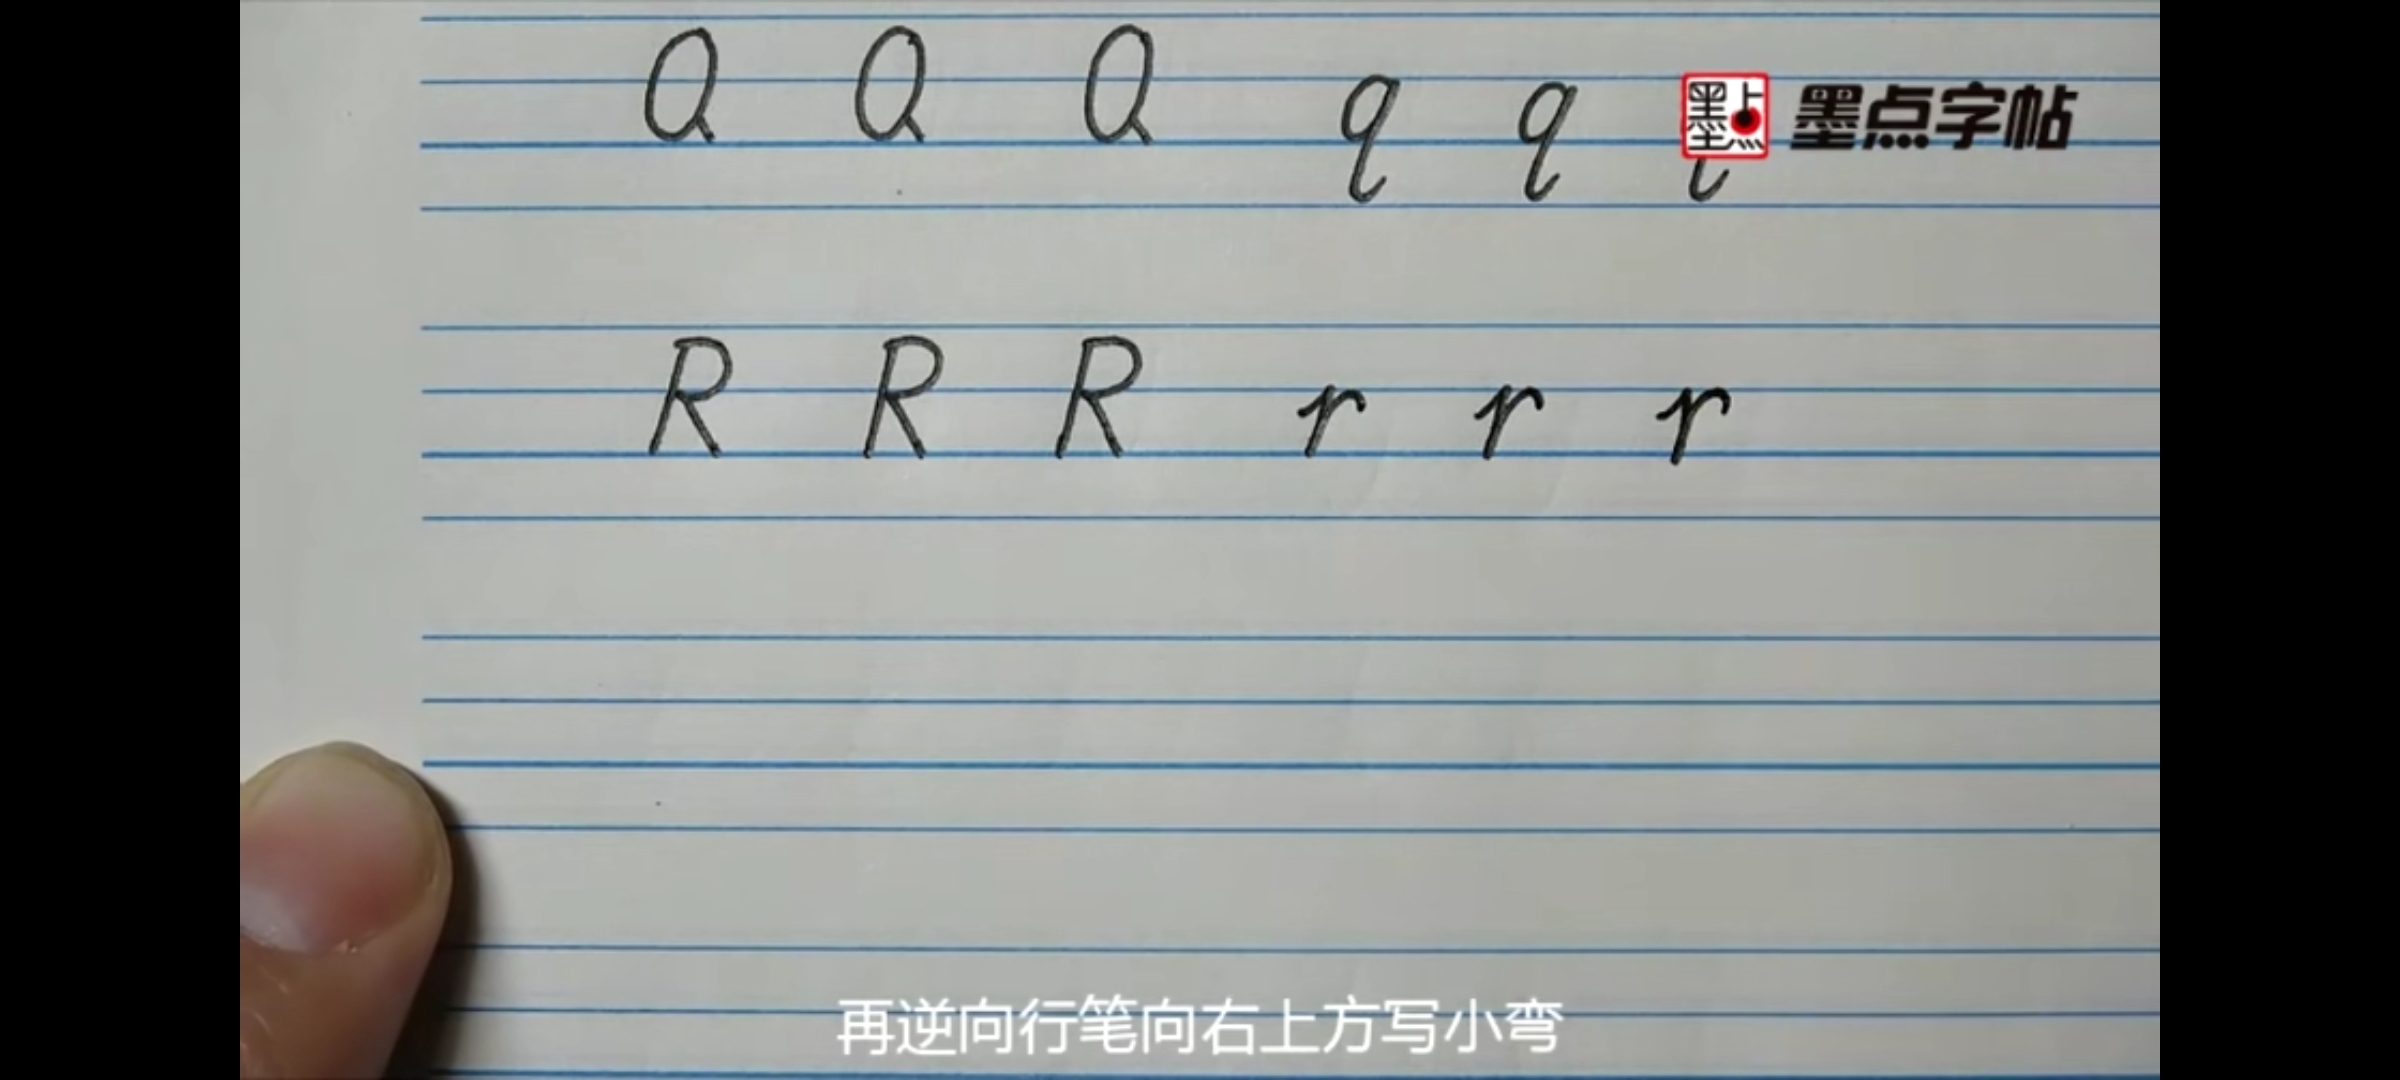 Q Q Q q q q
墨点 墨点字帖
R R R r r r
再逆向行笔向右上方写小弯